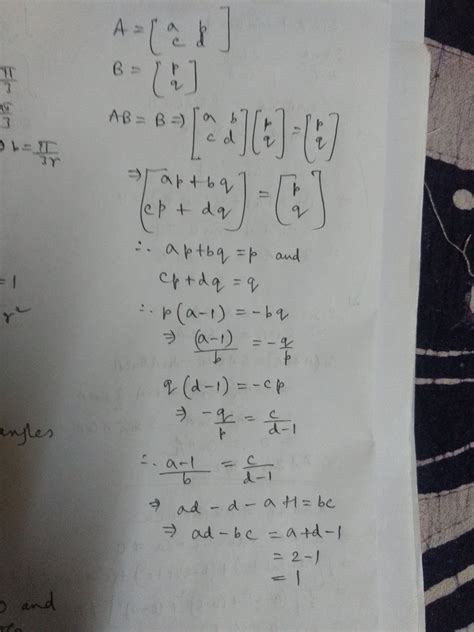 A = [a b
c d]
B = [p
q]
AB = B ⇒ [a b
c d] [p
q] = [p
q]
⇒ [ap + bq
cp + dq] = [p
q]
∴ ap + bq = p and
cp + dq = q
∴ p(a-1) = -bq
⇒ (a-1)/b = -q/p
q(d-1) = -cp
⇒ -q/p = c/d-1
∴ a-1/b = c/d-1
⇒ ad - d - a + 1 = bc
⇒ ad - bc = a + d - 1
= 2 - 1
= 1
π/3
b = π/3r
= 1
r²
angles
and